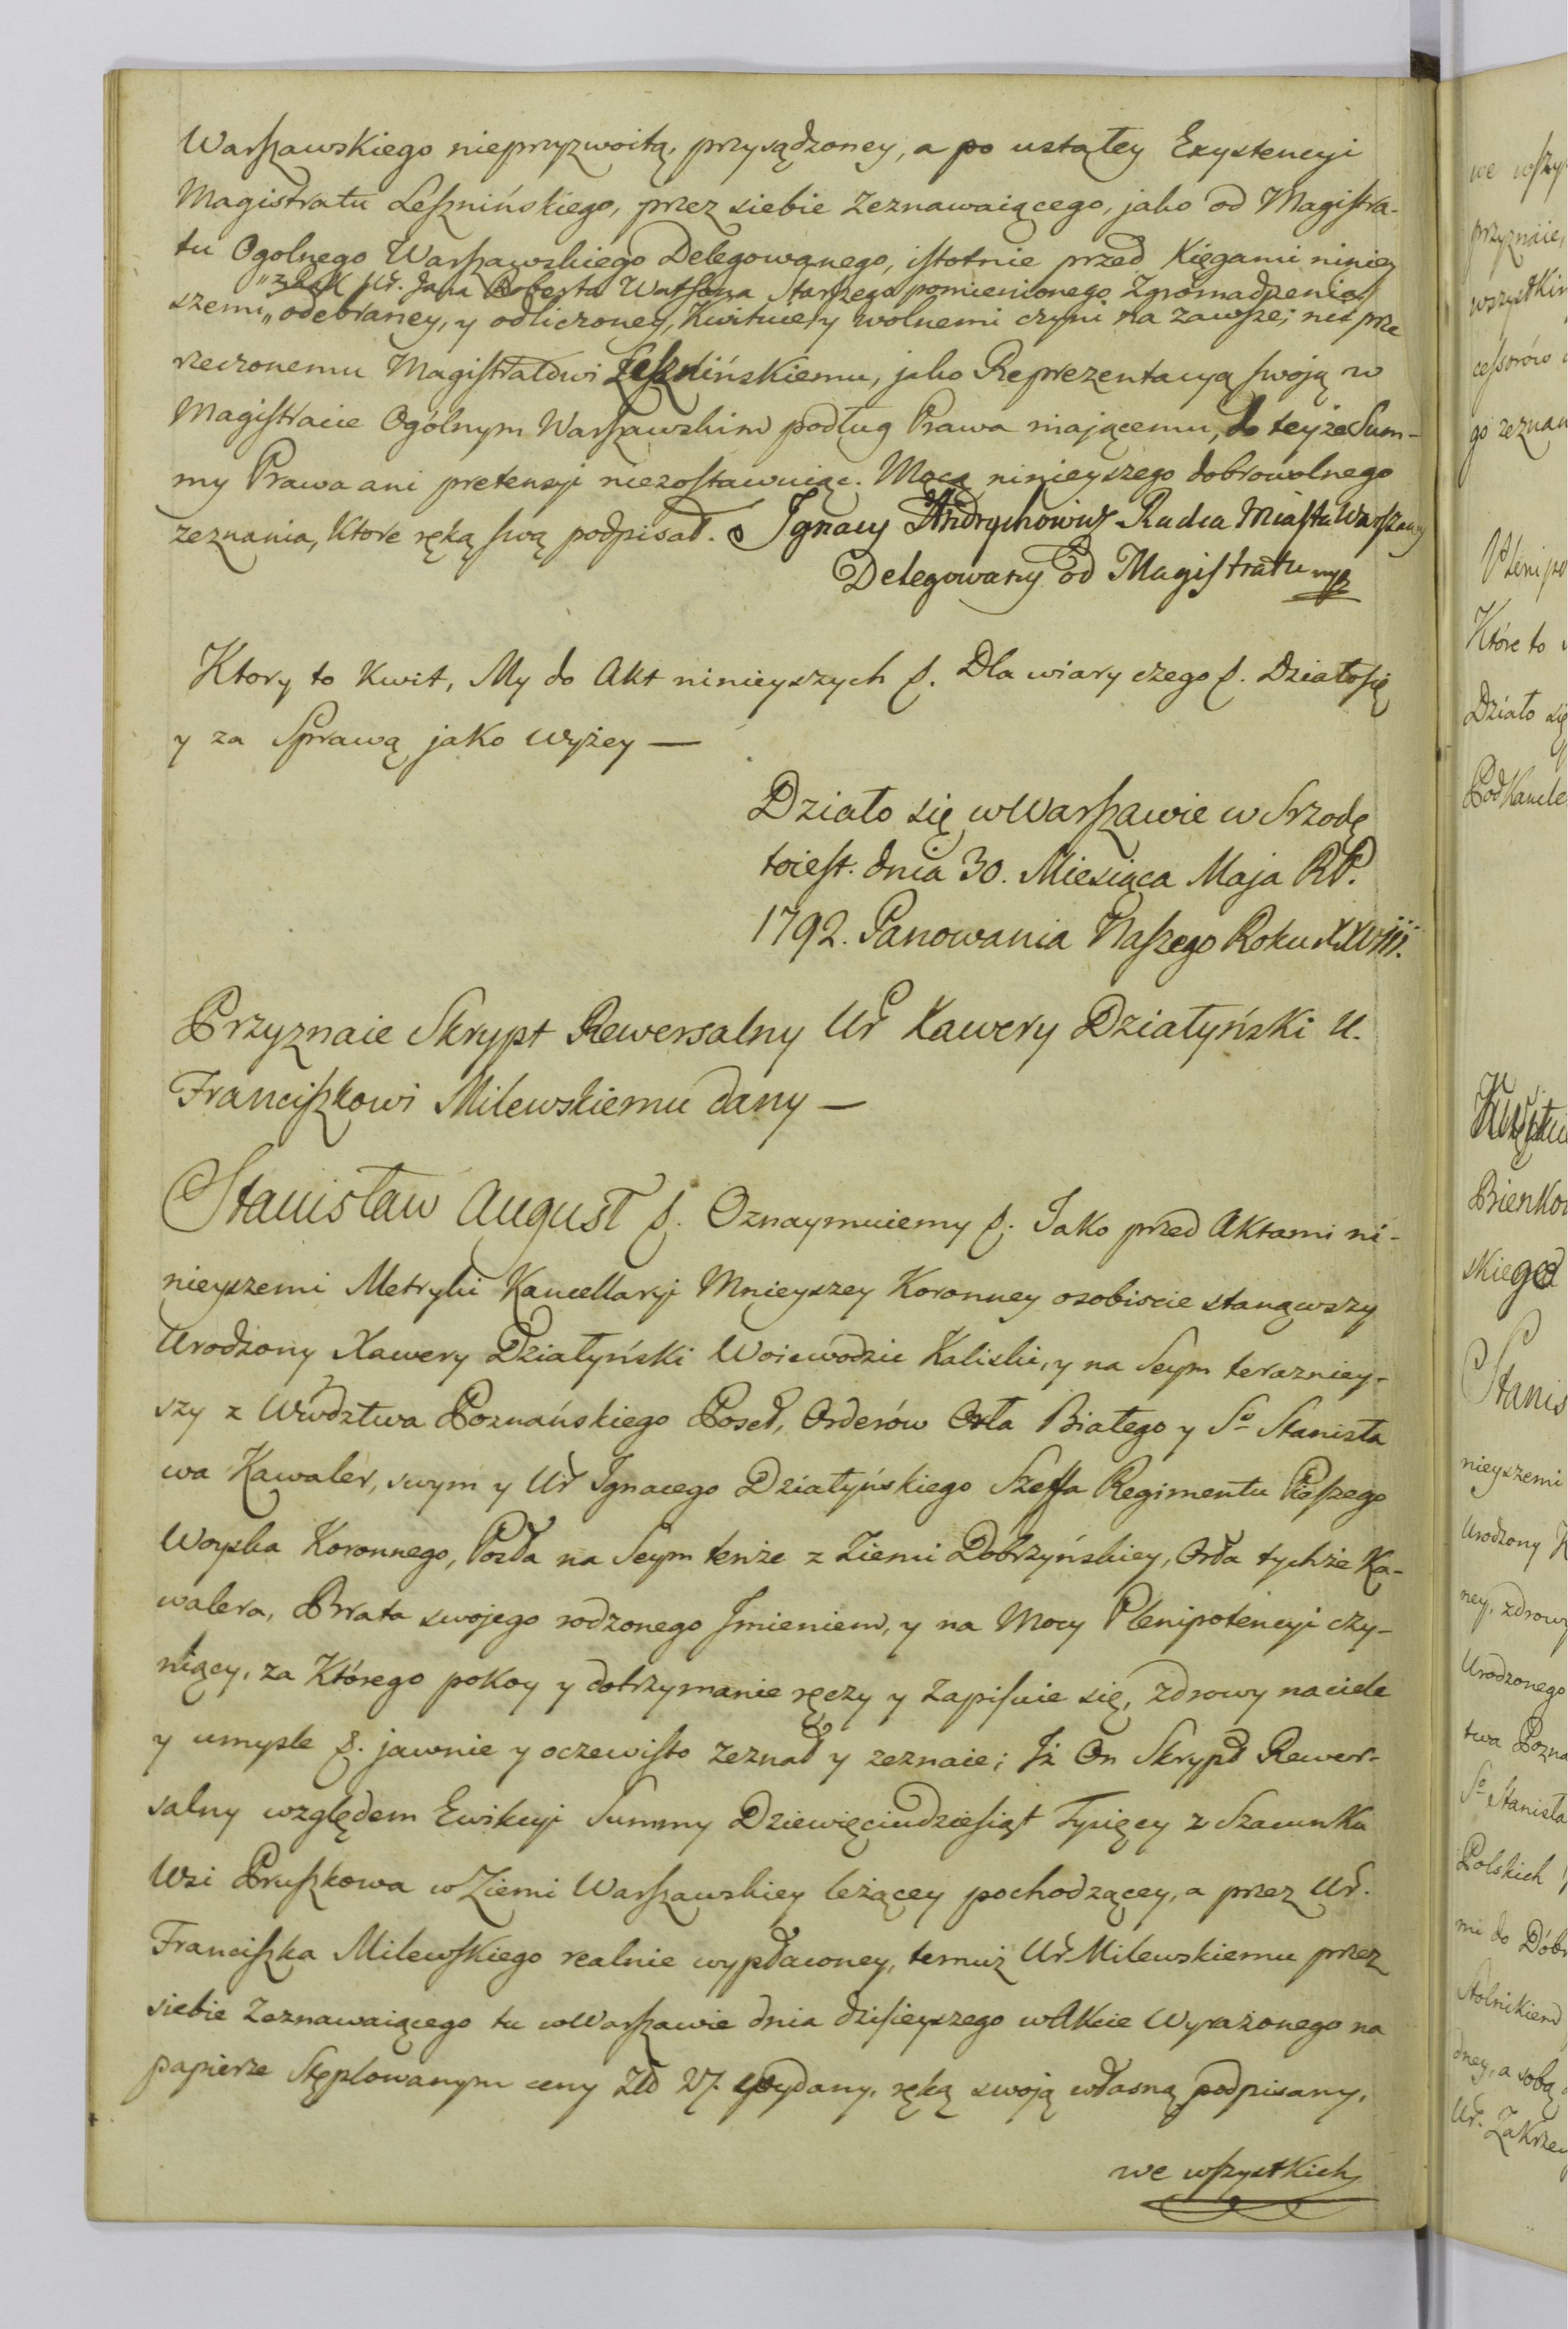 Warszawskiego nieprzyzwoitą, przysądzoney, a po ustałey Exystencyi
Magistratu Leszninskiego, przez siebie Zeznawaiącego, jako od Magistra-
tu Ogolnego Warszawskiego Delegowanego, istotnie przed Xięgami niniey
„z Rąk Ur. Jana Roberta Watsona Starszego pomienionego Zgromadzenia
szemi „ odebraney, y odliczoney, Kwituie y wolnemi czyni na zawsze; nic prze
rzeczonemu Magistratowi Leszninskiemu, jako Reprezentacyą swoją w
Magistracie Ogólnym Warszawskim podług Prawa maiącemu, do teyże Sum-
my Prawa ani pretensyi niezostawuiąc. Mocą ninieyszego dobrowolnego
zeznania, Ktore ręką swą podpisał. Ignacy Andrychowicz Radca Miasta Warszawy
Delegowany od Magistratu mp
Ktory to Kwit, My do Akt ninieyszych p. Dla wiary czego p. Działo się
y za Sprawą jako wyżey —
Działo się w Warszawie w Srzodę
toiest. dnia 30. Miesiąca Maja RP.
1792. Panowania Naszego Roku XXViii.
Przyznaie Skrypt Rewersalny Ur Xawery Działyński U.
Franciszkowi Milewskiemu dany —
Stanisław August p. Oznaymuiemy p. Jako przed Aktami ni-
nieyszemi Metryki Kancellaryi Mnieyszey Koronney osobiscie stanąwszy
Urodzony Xawery Działyński Woiewodzic Kaliski, y na Seym terazniey-
szy z Wwdztwa Poznańskiego Poseł, Orderów Orła Białego y So Stanisła
wa Kawaler, swym y Ur Ignacego Działyńskiego Szeffa Regimentu Pieszego
Woyska Koronnego, Posła na Seym tenże z Ziemi Dobrzyńskiey, Orła tychże Ka-
walera, Brata swojego rodzonego Imieniem, y na Mocy Plenipotencyi czy-
niący, za Którego pokoy y dotrzymanie ręczy y Zapisuie się, zdrowy na ciele
y umysle p. jawnie y oczewisto zeznał y zeznaie; Iż On Skrypt Rewer-
salny względem Ewikcyi Summy Dziewięciudziesiąt Tysięcy z Szacunku
Wsi Pruszkowa w Ziemi Warszawskiey leżącey pochodzącey, a przez Ur.
Franciszka Milewskiego realnie wypłaconey, temuż Ur Milewskiemu przez
siebie Zeznawaiącego tu w Warszawie dnia dzisieyszego w Akcie Wyrażonego na
papierze Stęplowanym ceny Złł 27. wydany, ręką swoją własną podpisany,
we wszystkich
we wszy
przyznaie,
wszystkim
cessorów
go zeznan
Które to
Działo się
Pod Kancle
Kwituie
Bienkow
skiego
Stanis
nieyszemi
Urodzony
ney, zdrowy
Urodzonego
twa Pozna
So Stanisła
Polskich
mi do Dóbr
Stolnikiem
dney, a sobą
Ur. Zakrzew